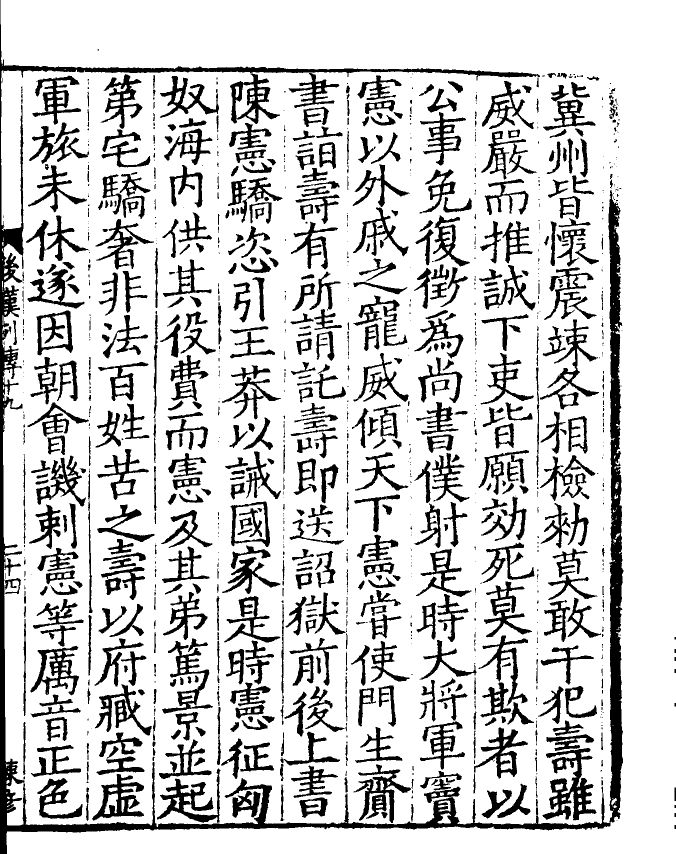 冀州皆懷震竦各相檢勑莫敢干犯壽雖
威嚴而推誠下吏皆願効死莫有欺者以
公事免復徵爲尚書僕射是時大將軍竇
憲以外戚之寵威傾天下憲嘗使門生齎
書詣壽有所請託壽即送詔獄前後上書
陳憲驕恣引王莽以誡國家是時憲征匈
奴海内供其役費而憲及其弟篤景並起
第宅驕奢非法百姓苦之壽以府臧空虛
軍旅未休遂因朝會譏刺憲等厲音正色
後漢列傳十九
二十四